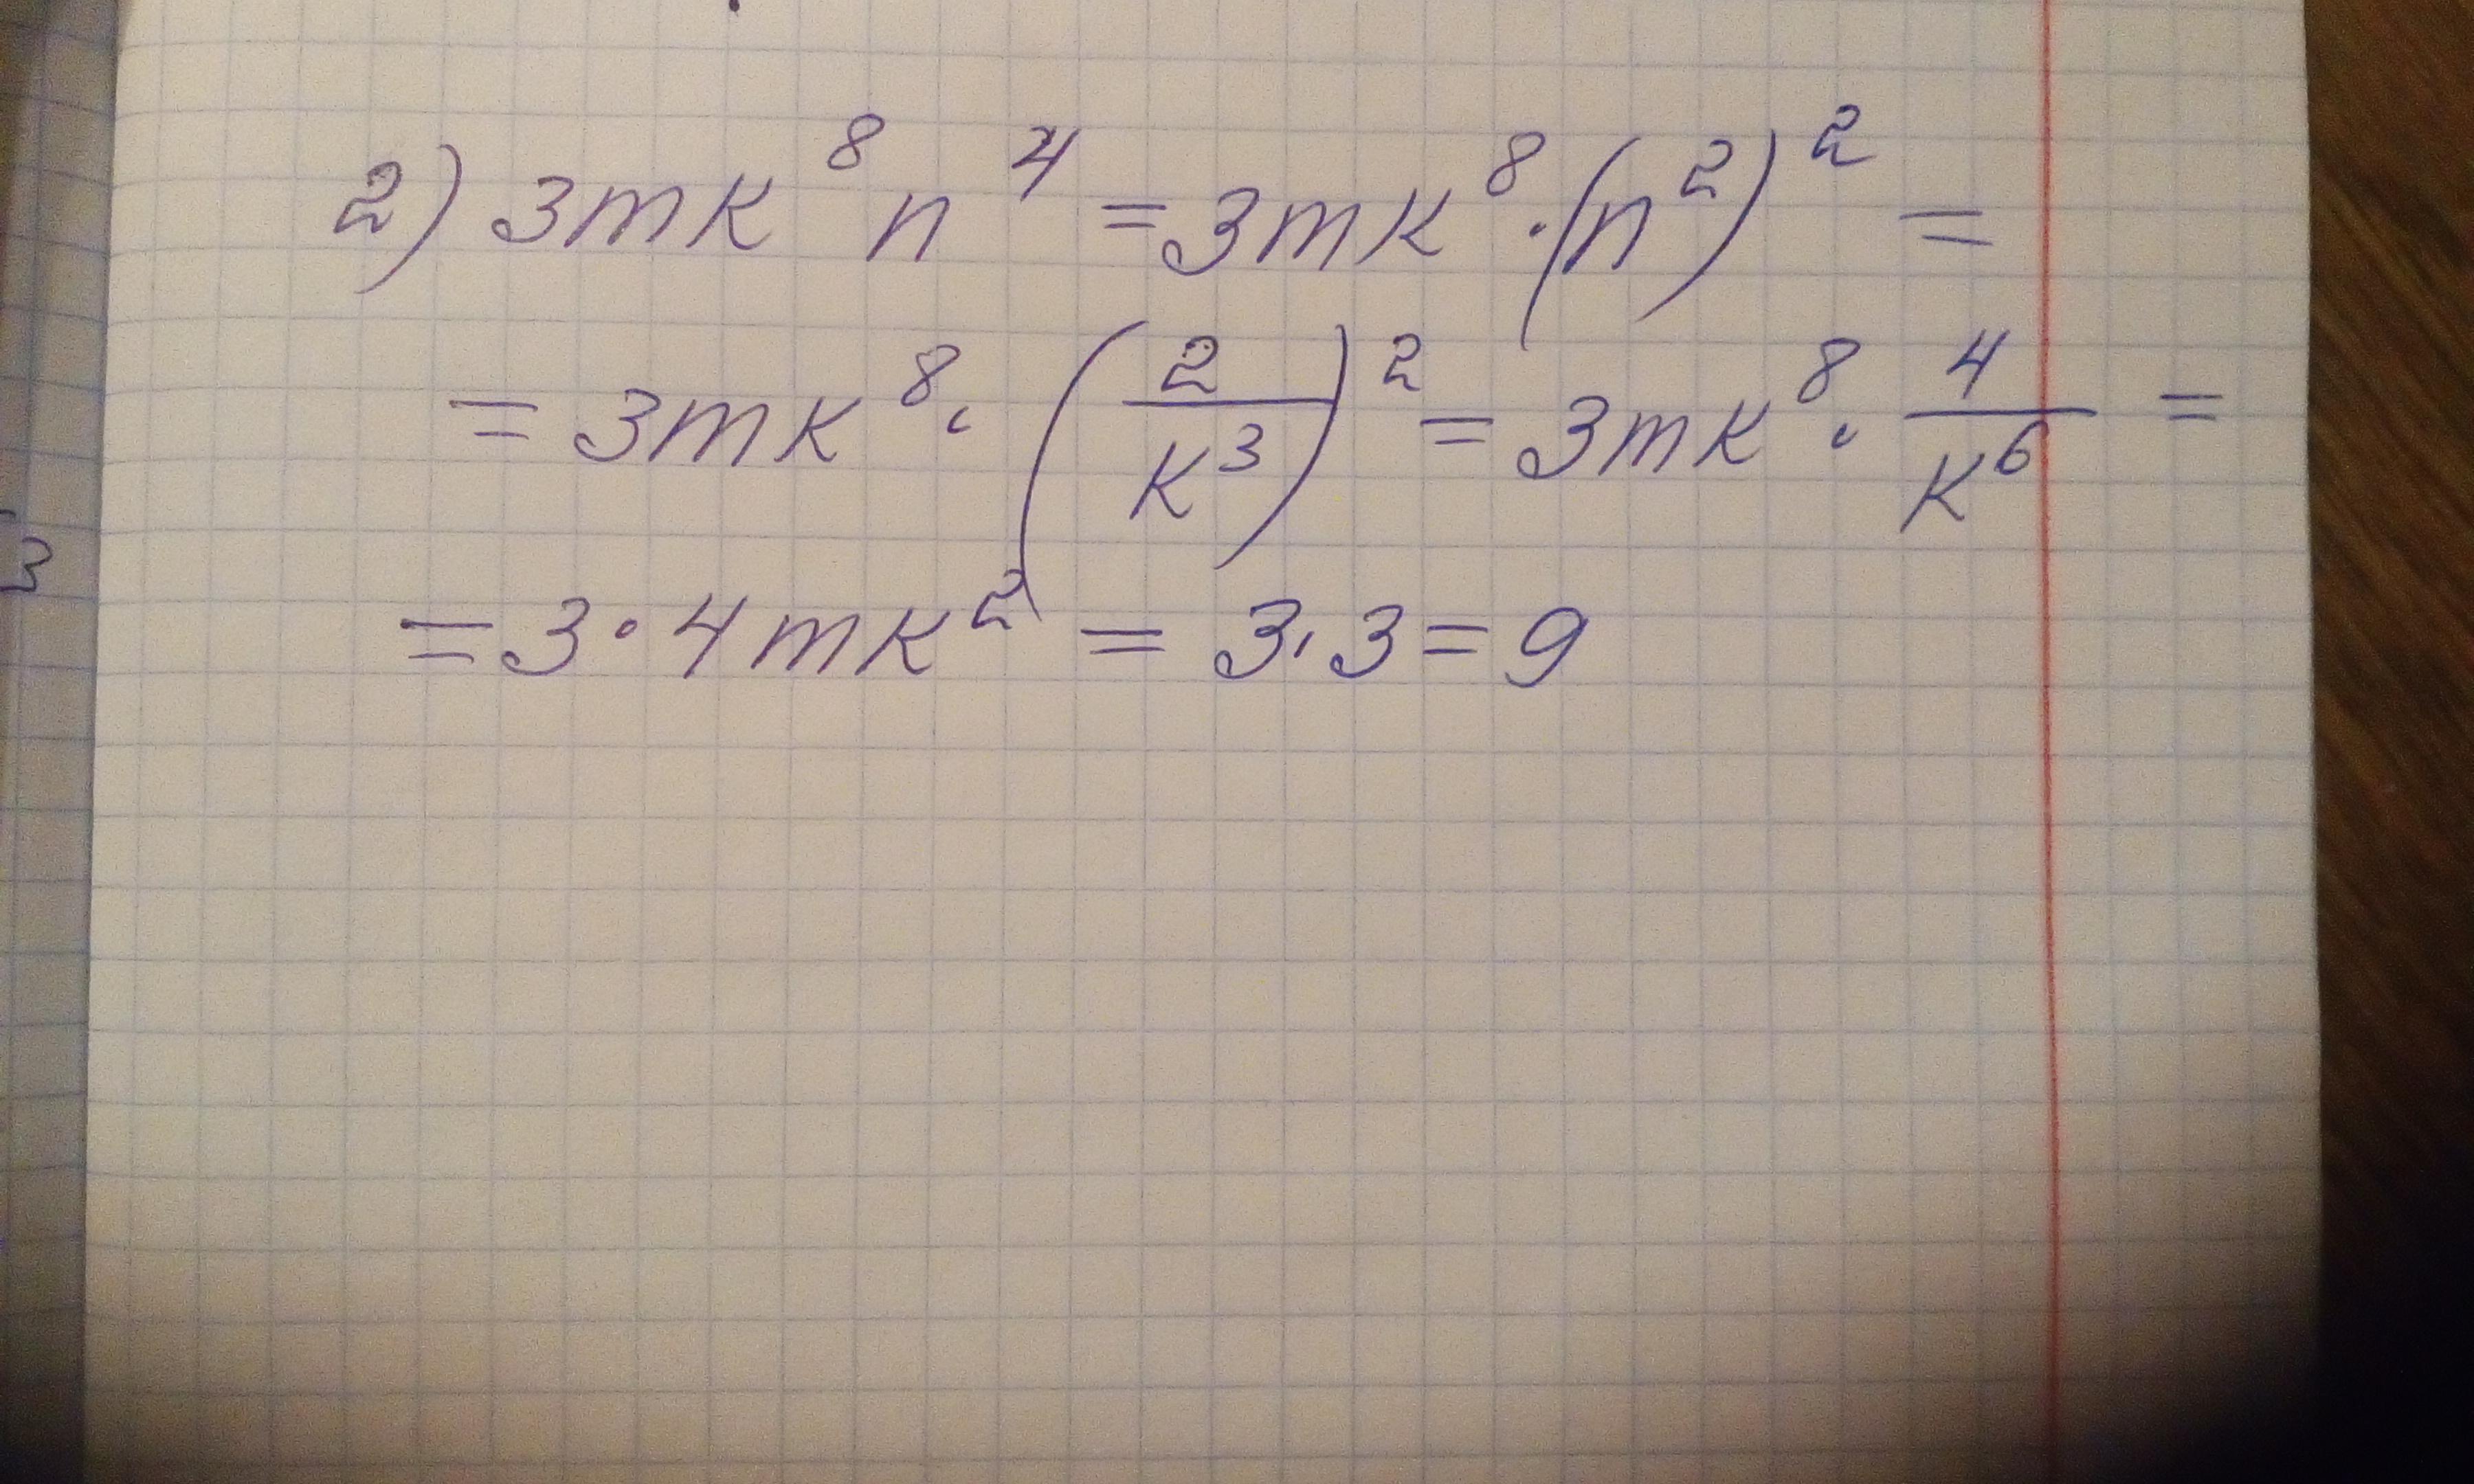 2) 3mk⁸n⁴ = 3mk⁸·(n²)² =
= 3mk⁸·(2/k³)² = 3mk⁸·4/k⁶ =
= 3·4mk² = 3·3 = 9
3